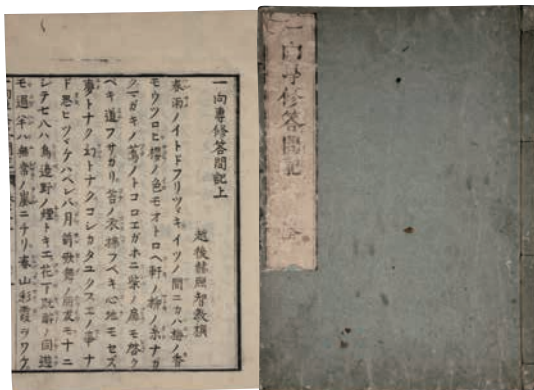 一向専修答問記 全
一向專修答問記上
越後隷顕智敎撰
春雨ノイトドフリツヾキイツノ間ニカハ梅ノ香
モウツロヒ櫻ノ色モオトロヘ軒ノ柳ノ糸ナガ
クマガキノ蔦ノトコロエガホニ柴ノ扉モ啓ク
ベキ道フサガリ苔ノ衣拂フベキ心地モセズ
夢トナク幻トナクコシカタユクスエノ事ナ
ド思ヒツヾケハベレバ月前歌舞ノ朋友モナニ
シテセハ鳥邉野ノ煙トキエ花下歡醉ノ同遊
モ過半ハ無常ノ嵐ニチリ春山ノ彩霞ヲワケ